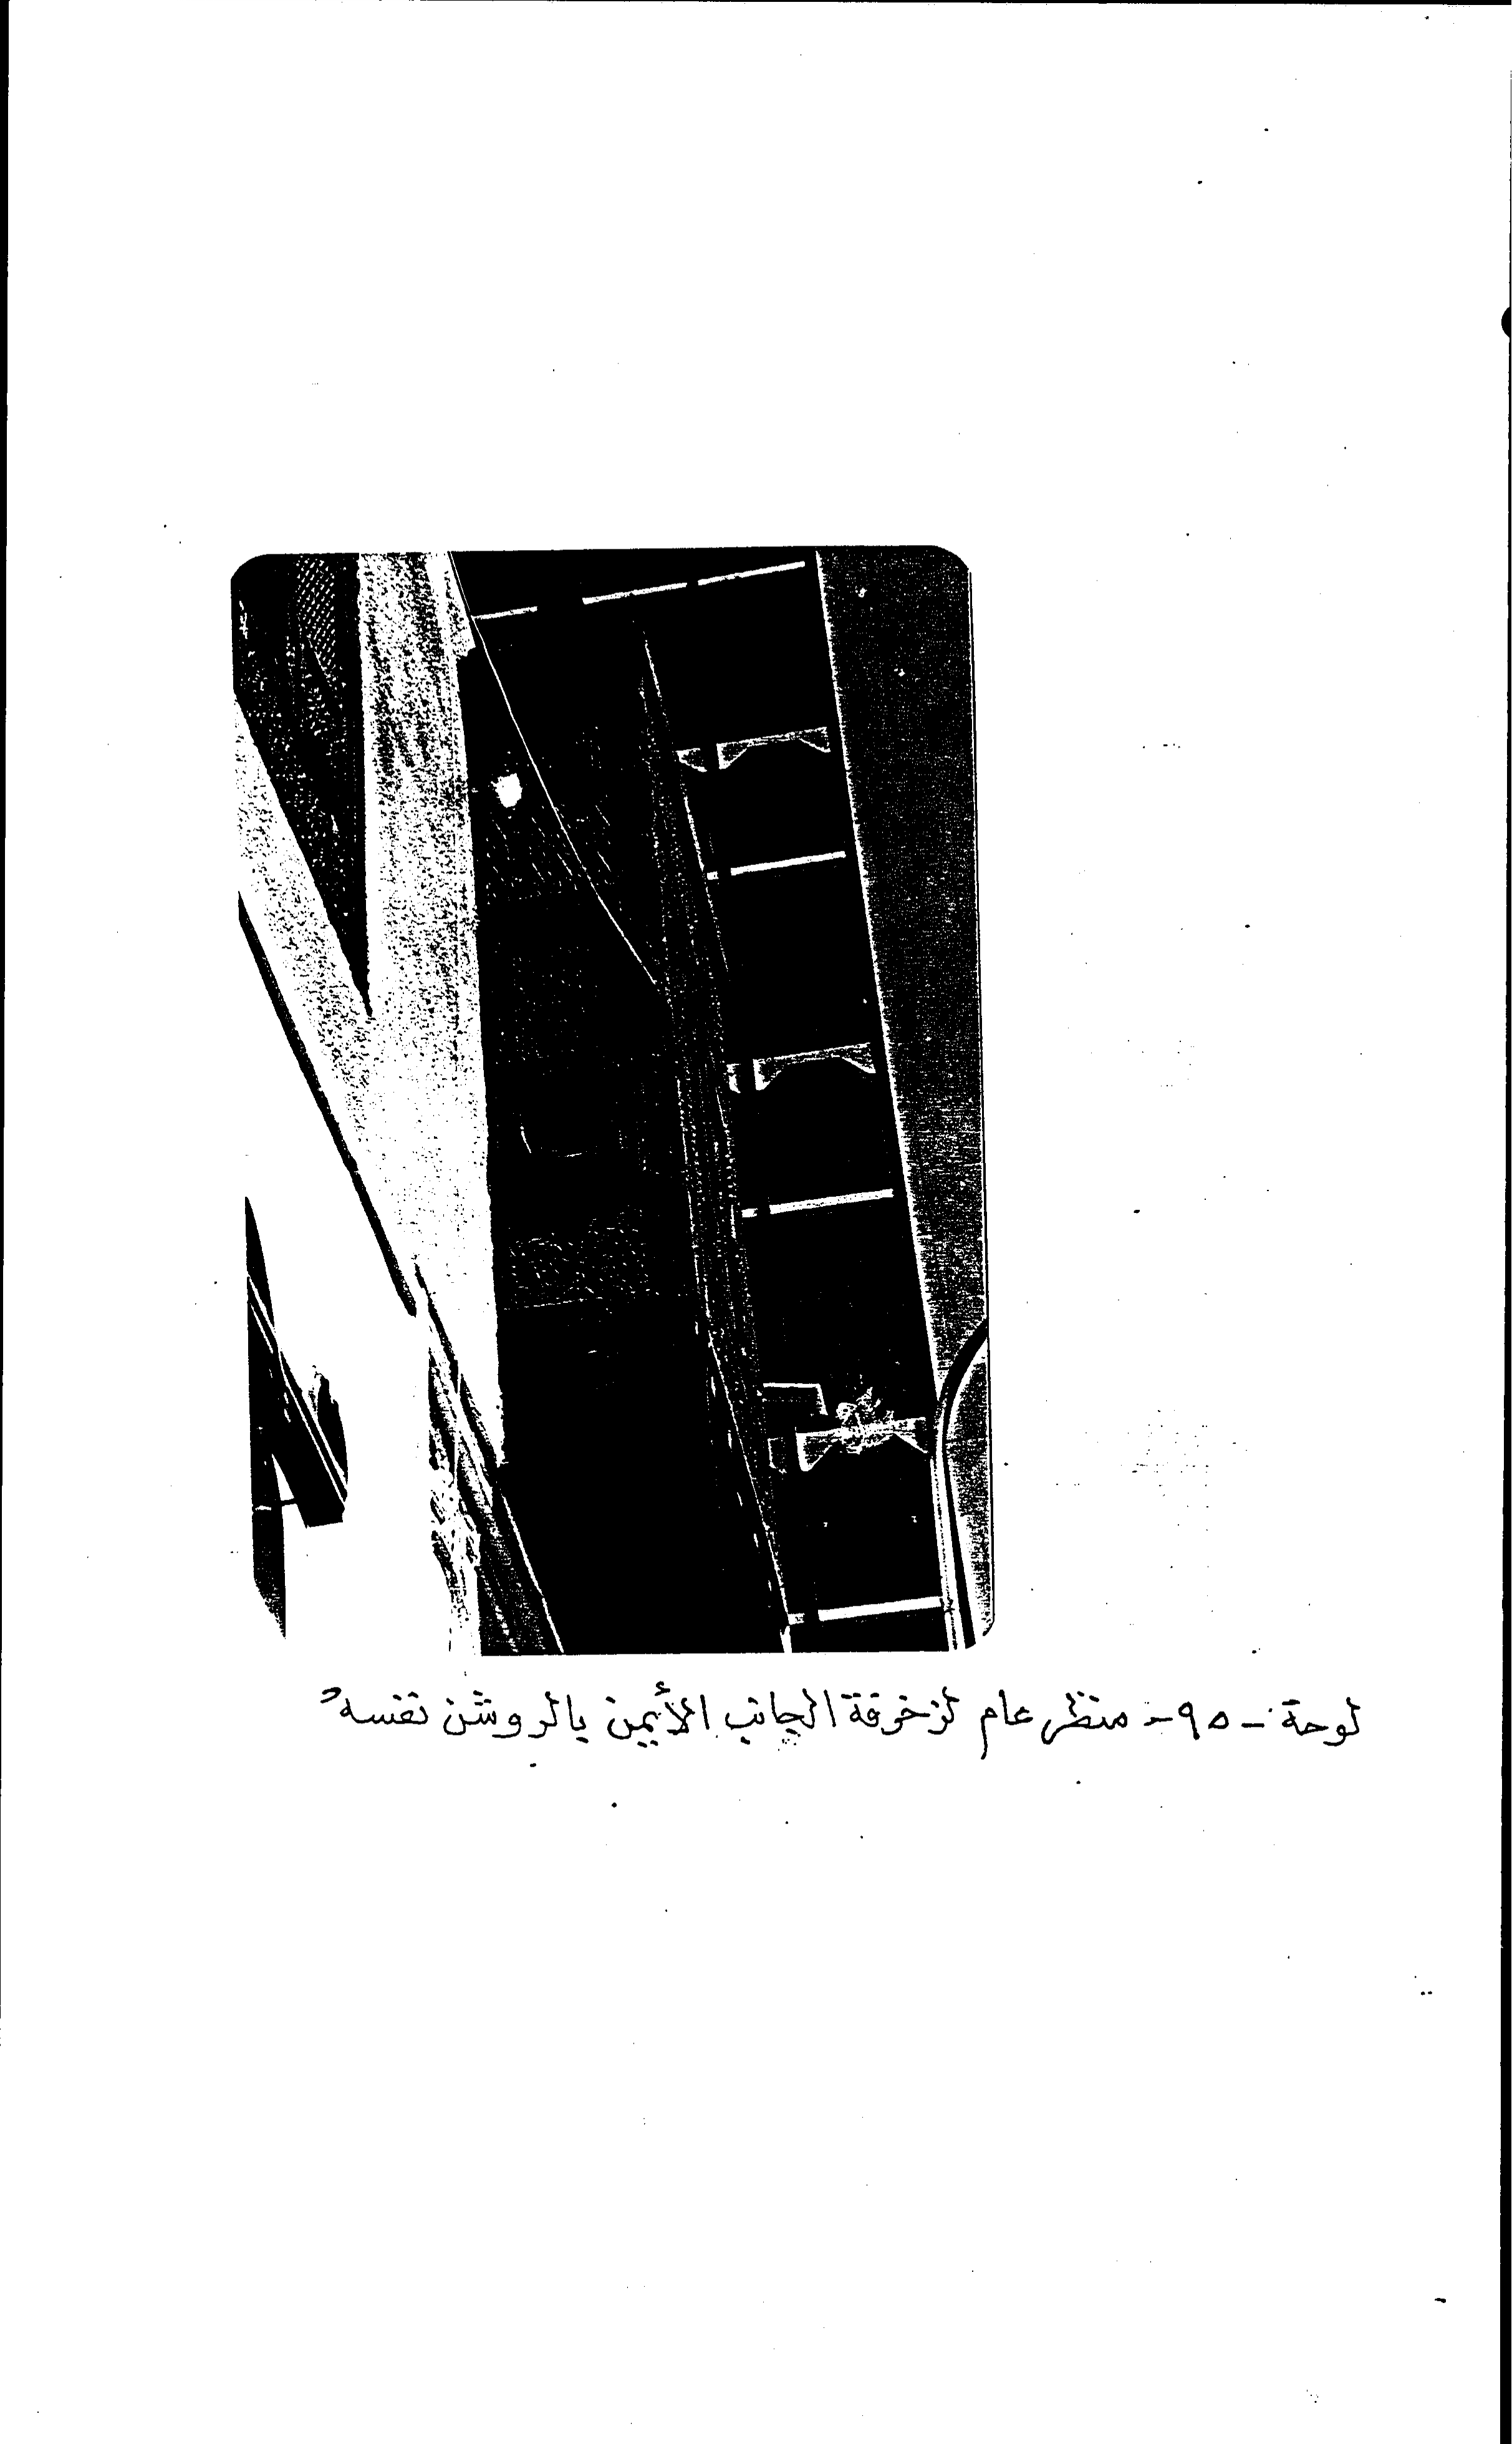 لوحة - ٩٥ - منظر عام لزخرفة الجانب الأيمن بالروشن نفسه